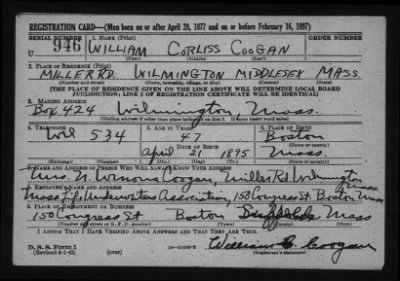 REGISTRATION CARD—(Men born on or after April 28, 1877 and on or before February 16, 1897)
SERIAL NUMBER 1. NAME (Print) ORDER NUMBER
U 946 WILLIAM CORLISS COOGAN
(First) (Middle) (Last)
2. PLACE OF RESIDENCE (Print)
MILLER RD. WILMINGTON MIDDLESEX MASS.
(Number and street) (Town, township, village, or city) (County) (State)
[THE PLACE OF RESIDENCE GIVEN ON THE LINE ABOVE WILL DETERMINE LOCAL BOARD
JURISDICTION; LINE 2 OF REGISTRATION CERTIFICATE WILL BE IDENTICAL]
3. MAILING ADDRESS
Box 424 Wilmington Mass.
[Mailing address if other than place indicated on line 2. If same insert word same]
4. TELEPHONE 5. AGE IN YEARS 6. PLACE OF BIRTH
Wil 534 47 Boston
DATE OF BIRTH (Town or county)
April 21 1895 Mass.
(Exchange) (Number) (Mo.) (Day) (Yr.) (State or country)
7. NAME AND ADDRESS OF PERSON WHO WILL ALWAYS KNOW YOUR ADDRESS
Mrs. N. Coogan, Miller Rd. Wilmington Mass
8. EMPLOYER'S NAME AND ADDRESS
Underwriters Association, 150 Congress St. Boston Mass
9. PLACE OF EMPLOYMENT OR BUSINESS
150 Congress St Boston Suffolk Mass
(Number and street or R. F. D. number) (Town) (County) (State)
I AFFIRM THAT I HAVE VERIFIED ABOVE ANSWERS AND THAT THEY ARE TRUE.
D. S. S. Form 1
(Revised 4-1-42) (over) William C. Coogan
(Registrant's signature)